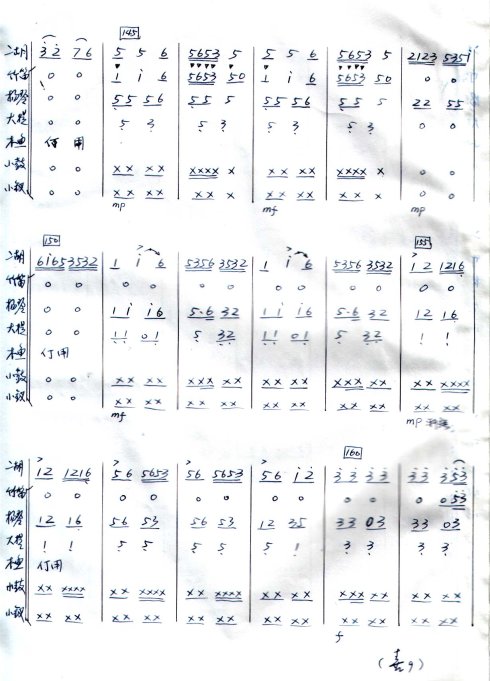 145
二胡 3 2 7 6 | 5 5 6 | 5653 5 | 5 5 6 | 5653 5 | 2123 5351
竹笛 0 0 | 1 i 6 | 5653 50 | 1 i 6 | 5653 50 | 0 0
扬琴 0 0 | 55 56 | 55 5 | 55 56 | 55 5 | 22 55
大提 0 0 | 5 3 | 5 3 | 5 3 | 5 3 | 0 0
木鱼
小鼓 0 0 | xx xx | xxxx x | xx xx | xxxx x | 0 0
小钗 0 0 | xx xx | xx x | xx xx | xx x | 0 0
mp mf mp
150 155
二胡 6i65 3532 | 1 i 6 | 5356 3532 | 1 i 6 | 5356 3532 | i2 1216
竹笛 0 0 | 0 0 | 0 0 | 0 0 | 0 0 | 0 0
扬琴 | 1i i6 | 5·6 32 | 1i i6 | 5·6 32 | 12 16
大提 | 11 01 | 5 32 | 11 01 | 5 32 | 1 1
木鱼
小鼓 0 0 | xx xx | xx xx | xx xx | xxx xx | xx xxxx
小钗 0 0 | xx xx | xx xx | xx xx | xx xx | xx xx
mf mp
160
二胡 i2 1216 | 56 5653 | 56 5653 | 56 i2 | 33 33 | 33 353
竹笛 0 0 | 0 0 | 0 0 | 0 0 | 0 0 | 0 053
扬琴 12 16 | 56 53 | 56 53 | 12 35 | 33 03 | 33 03
大提 1 1 | 5 5 | 5 5 | 5 1 | 3 3 | 3 3
木鱼
小鼓 xx xxxx | xx xxxx | xx xxxx | xx xx | xxx xx | xx xx
小钗 xx xx | xx xx | xx xx | xx xx | xx xx | xx xx
f
(喜9)